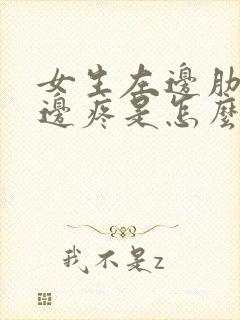 女生左邊肋
邊疼是怎麼
我不是z